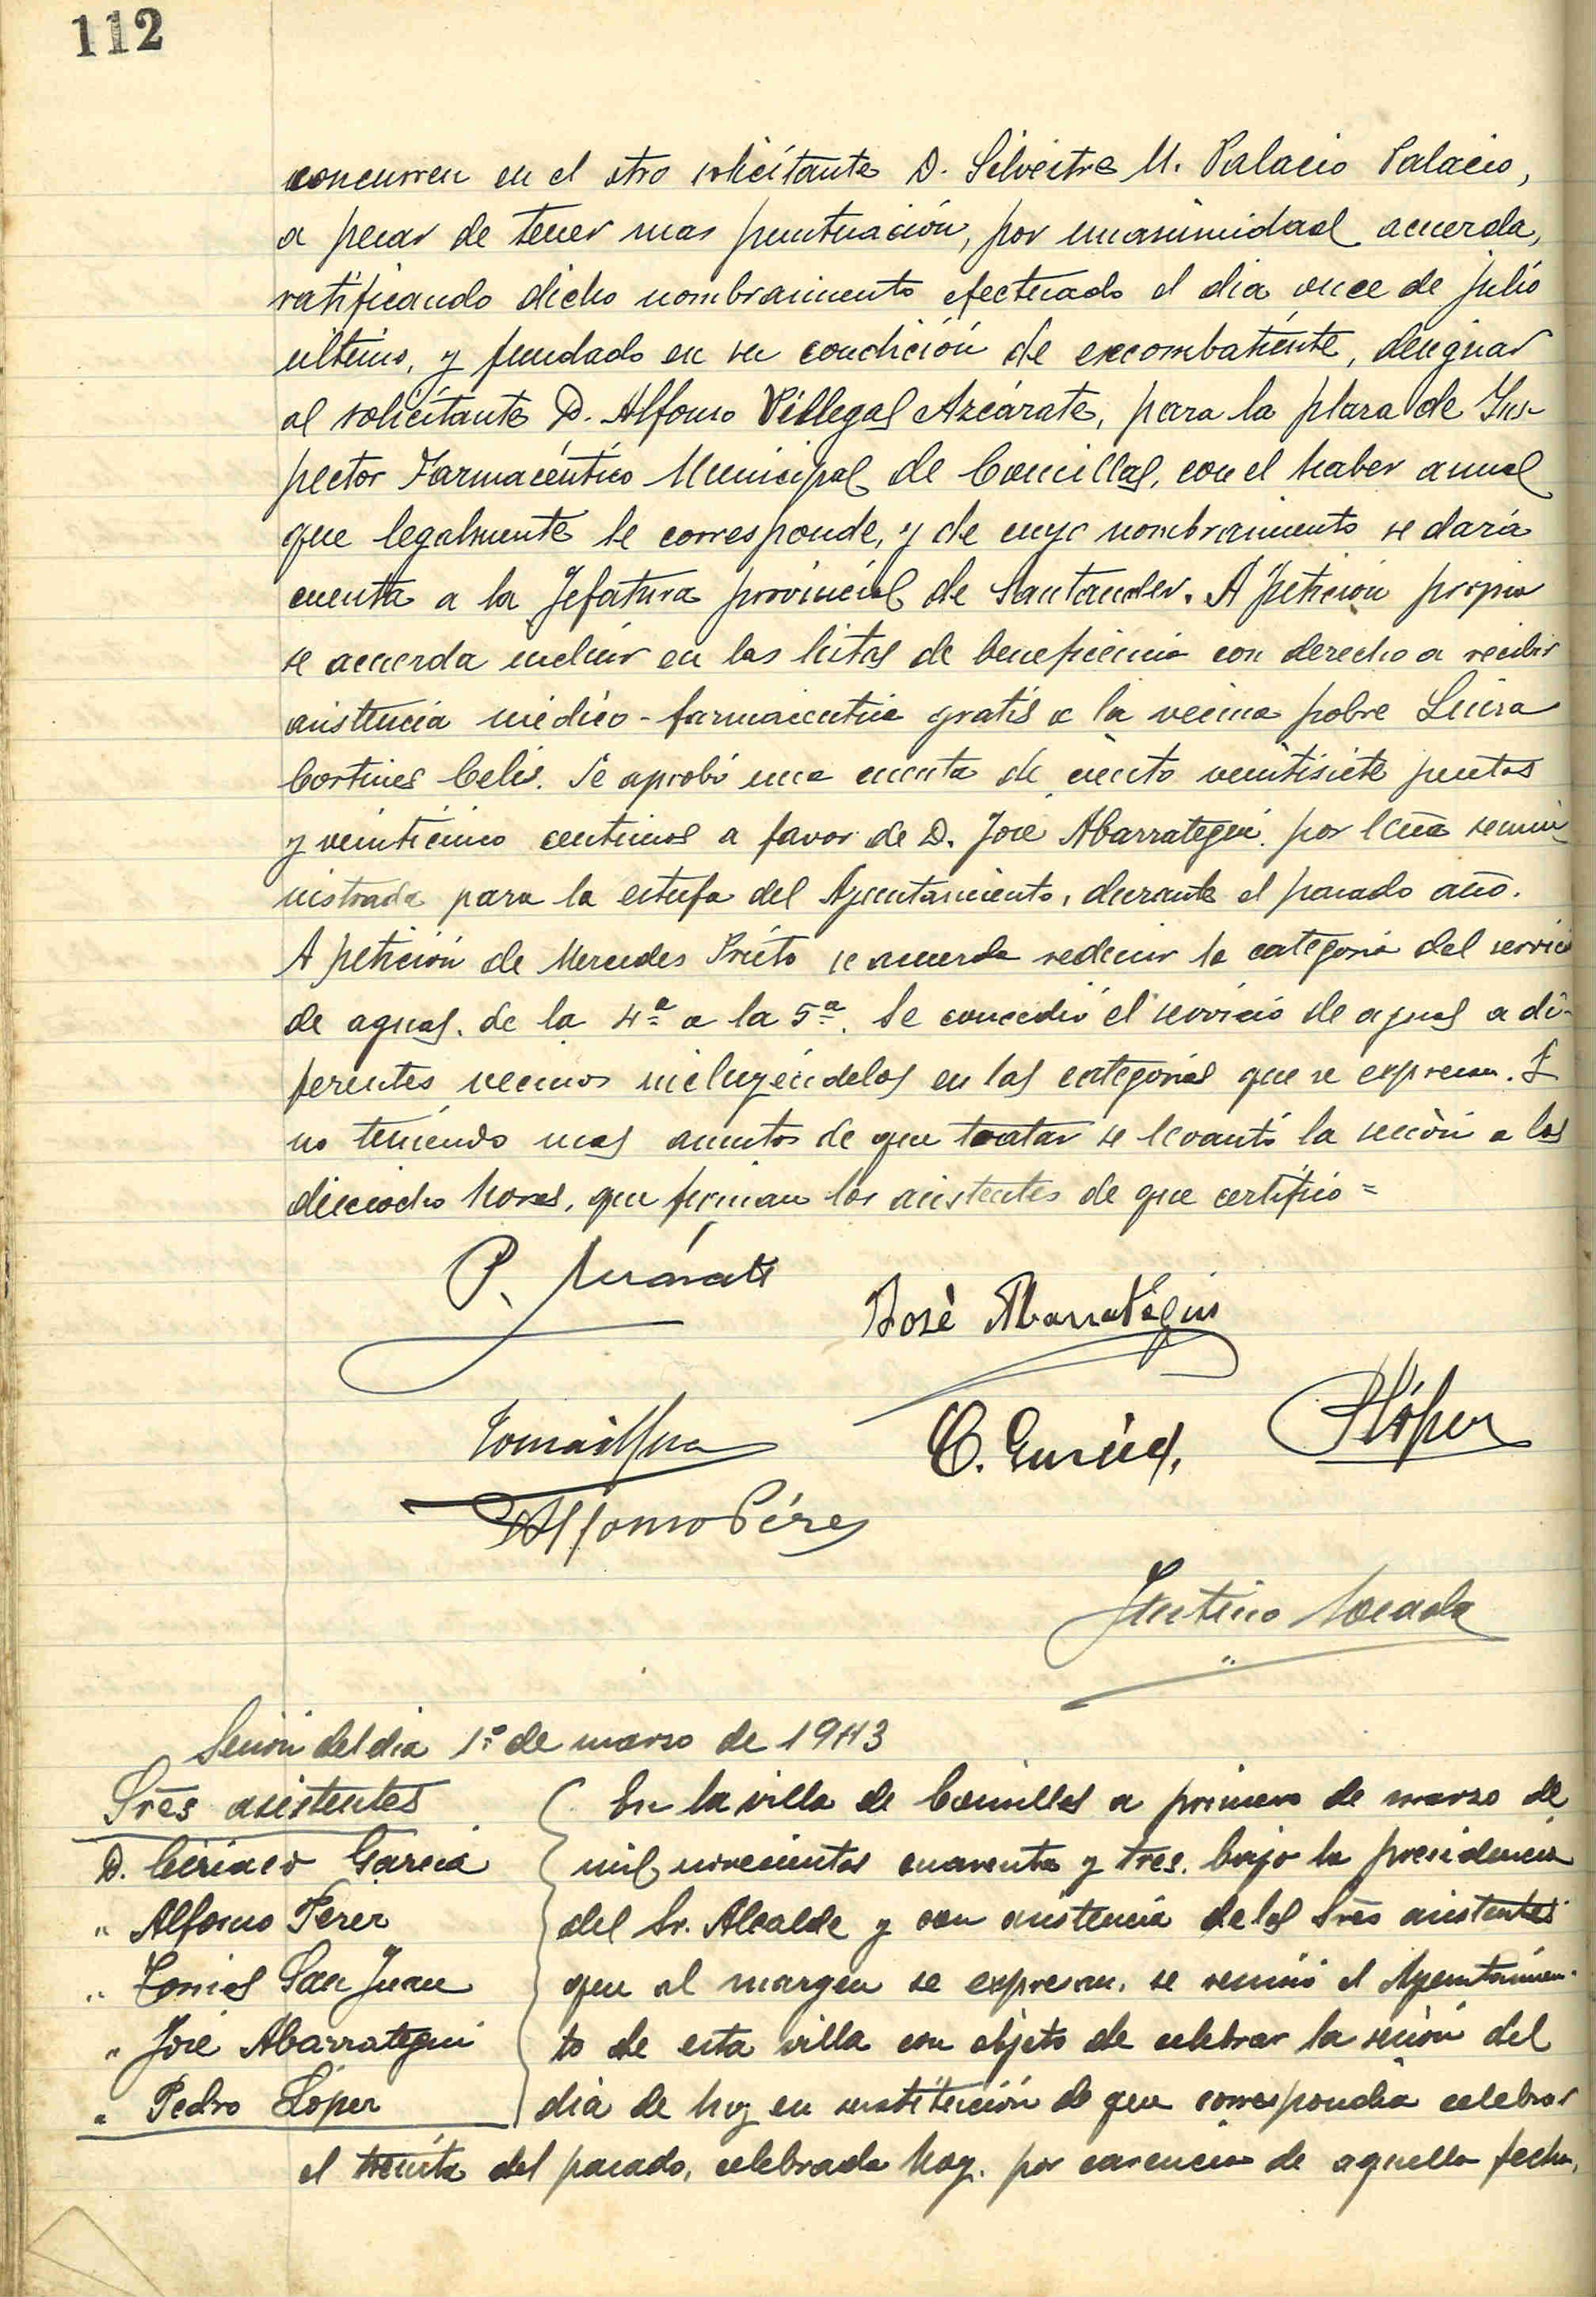 112
concurren en el otro solicitante D. Silvestre M. Palacio Palacio,
a pesar de tener mas puntuación, por unanimidad acuerda,
ratificando dicho nombramiento efectuado el dia once de julio
ultimo, y fundado en su condición de excombatiente, designar
al solicitante D. Alfonso Villegas Azcárate, para la plaza de Ins-
pector Farmacéutico Municipal de Comillas, con el haber anual
que legalmente le corresponde, y de cuyo nombramiento se dará
cuenta a la Jefatura provincial de Santander. A petición propia
se acuerda incluir en las listas de beneficencia con derecho a recibir
asistencia médico-farmaceutica gratis a la vecina pobre Luisa
Cortines Celis. Se aprobó una cuenta de ciento veintisiete pesetas
y veinticinco centimos a favor de D. José Abarrategui por leña sumi
nistrada para la estufa del Ayuntamiento, durante el pasado año.
A petición de Mercedes Prieto se acuerda reducir la categoria del servicio
de aguas, de la 4ª a la 5ª. Se concedió el servicio de aguas a di-
ferentes vecinos incluyéndolos en las categorias que se expresan. Y
no teniendo mas asuntos de que tratar se levantó la sesión a las
dieciocho horas, que firman los asistentes de que certifico =
P.
José Abarrategui
C. García
P López
Alfonso Pérez
Sesión del dia 1º de marzo de 1943
Sres asistentes
D. Ciriaco García
" Alfonso Perez
" Tomas San Juan
" José Abarrategui
" Pedro López
En la villa de Comillas a primero de marzo de
mil novecientos cuarenta y tres, bajo la presidencia
del Sr. Alcalde y con asistencia de los Sres asistentes
que al margen se expresan, se reunió el Ayuntamien-
to de esta villa con objeto de celebrar la sesión del
dia de hoy en sustitución de que correspondia celebrar
el treinta del pasado, celebrada hoy, por carencia de aquella fecha,